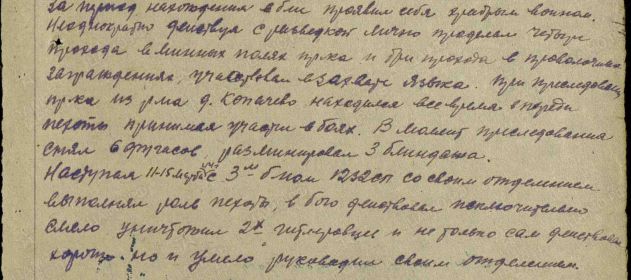 За период нахождения в б-не проявил себя храбрым воином.
Неоднократно действуя с разведкой лично проделал четыре
прохода в минных полях пр-ка и три прохода в проволочных
заграждениях, участвовал в захвате языка. При преследовании
пр-ка из р-на д. Копачево находился все время впереди
пехоты принимая участие в боях. В момент преследования
снял 6 фугасов, разминировал 3 блиндажа.
Наступая 11-15 марта с 3м б-ном 1232 сп со своим отделением
выполнял роль пехоты, в бою действовал исключительно
смело уничтожил 2х гитлеровцев и не только сам действовал
хорошо но и умело руководил своим отделением.